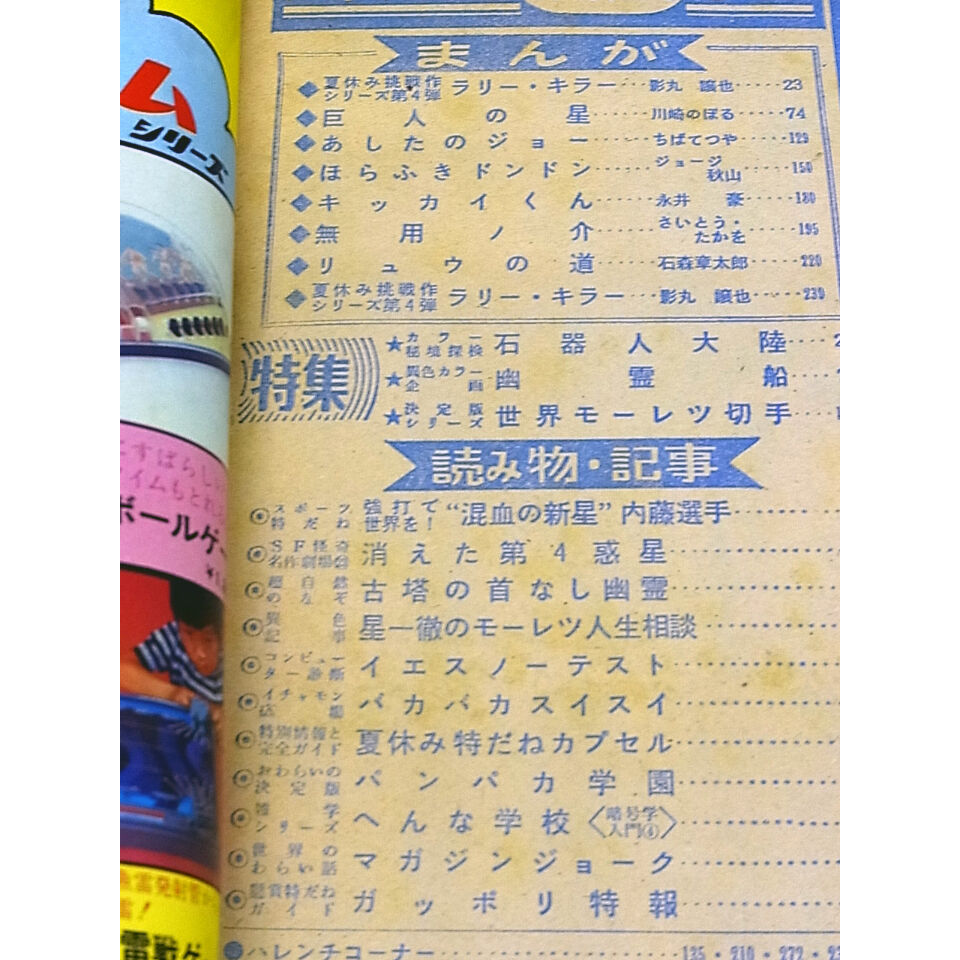 ム
シリーズ
すばらしい
イムもとれ
ボールゲー
魚雷発射管
雷戦ゲ
まんが
夏休み挑戦作
シリーズ第4弾 ラリー・キラー…影丸 譲也……23
巨人の星……川崎のぼる……74
あしたのジョー……ちばてつや……129
ほらふきドンドン……ジョージ秋山……150
キッカイくん……永井 豪……180
無用ノ介……さいとう・たかを……195
リュウの道……石森章太郎……220
夏休み挑戦作
シリーズ第4弾 ラリー・キラー…影丸 譲也……239
特集
★カラー秘境探検 石器人大陸
★異色カラー企画 幽霊船
★決定版シリーズ 世界モーレツ切手
読み物・記事
スポーツ特だね 強打で世界を！“混血の新星”内藤選手
SF怪奇名作劇場 消えた第4惑星
超自然のなぞ 古塔の首なし幽霊
異色記事 星一徹のモーレツ人生相談
コンピューター診断 イエスノーテスト
イチャモン広場 バカバカスイスイ
特別情報と完全ガイド 夏休み特だねカプセル
おわらいの決定版 パンパカ学園
雑学シリーズ へんな学校〈暗号学入門④〉
世界のわらい話 マガジンジョーク
懸賞特だねガイド ガッポリ特報
ハレンチコーナー……135・210・272・2